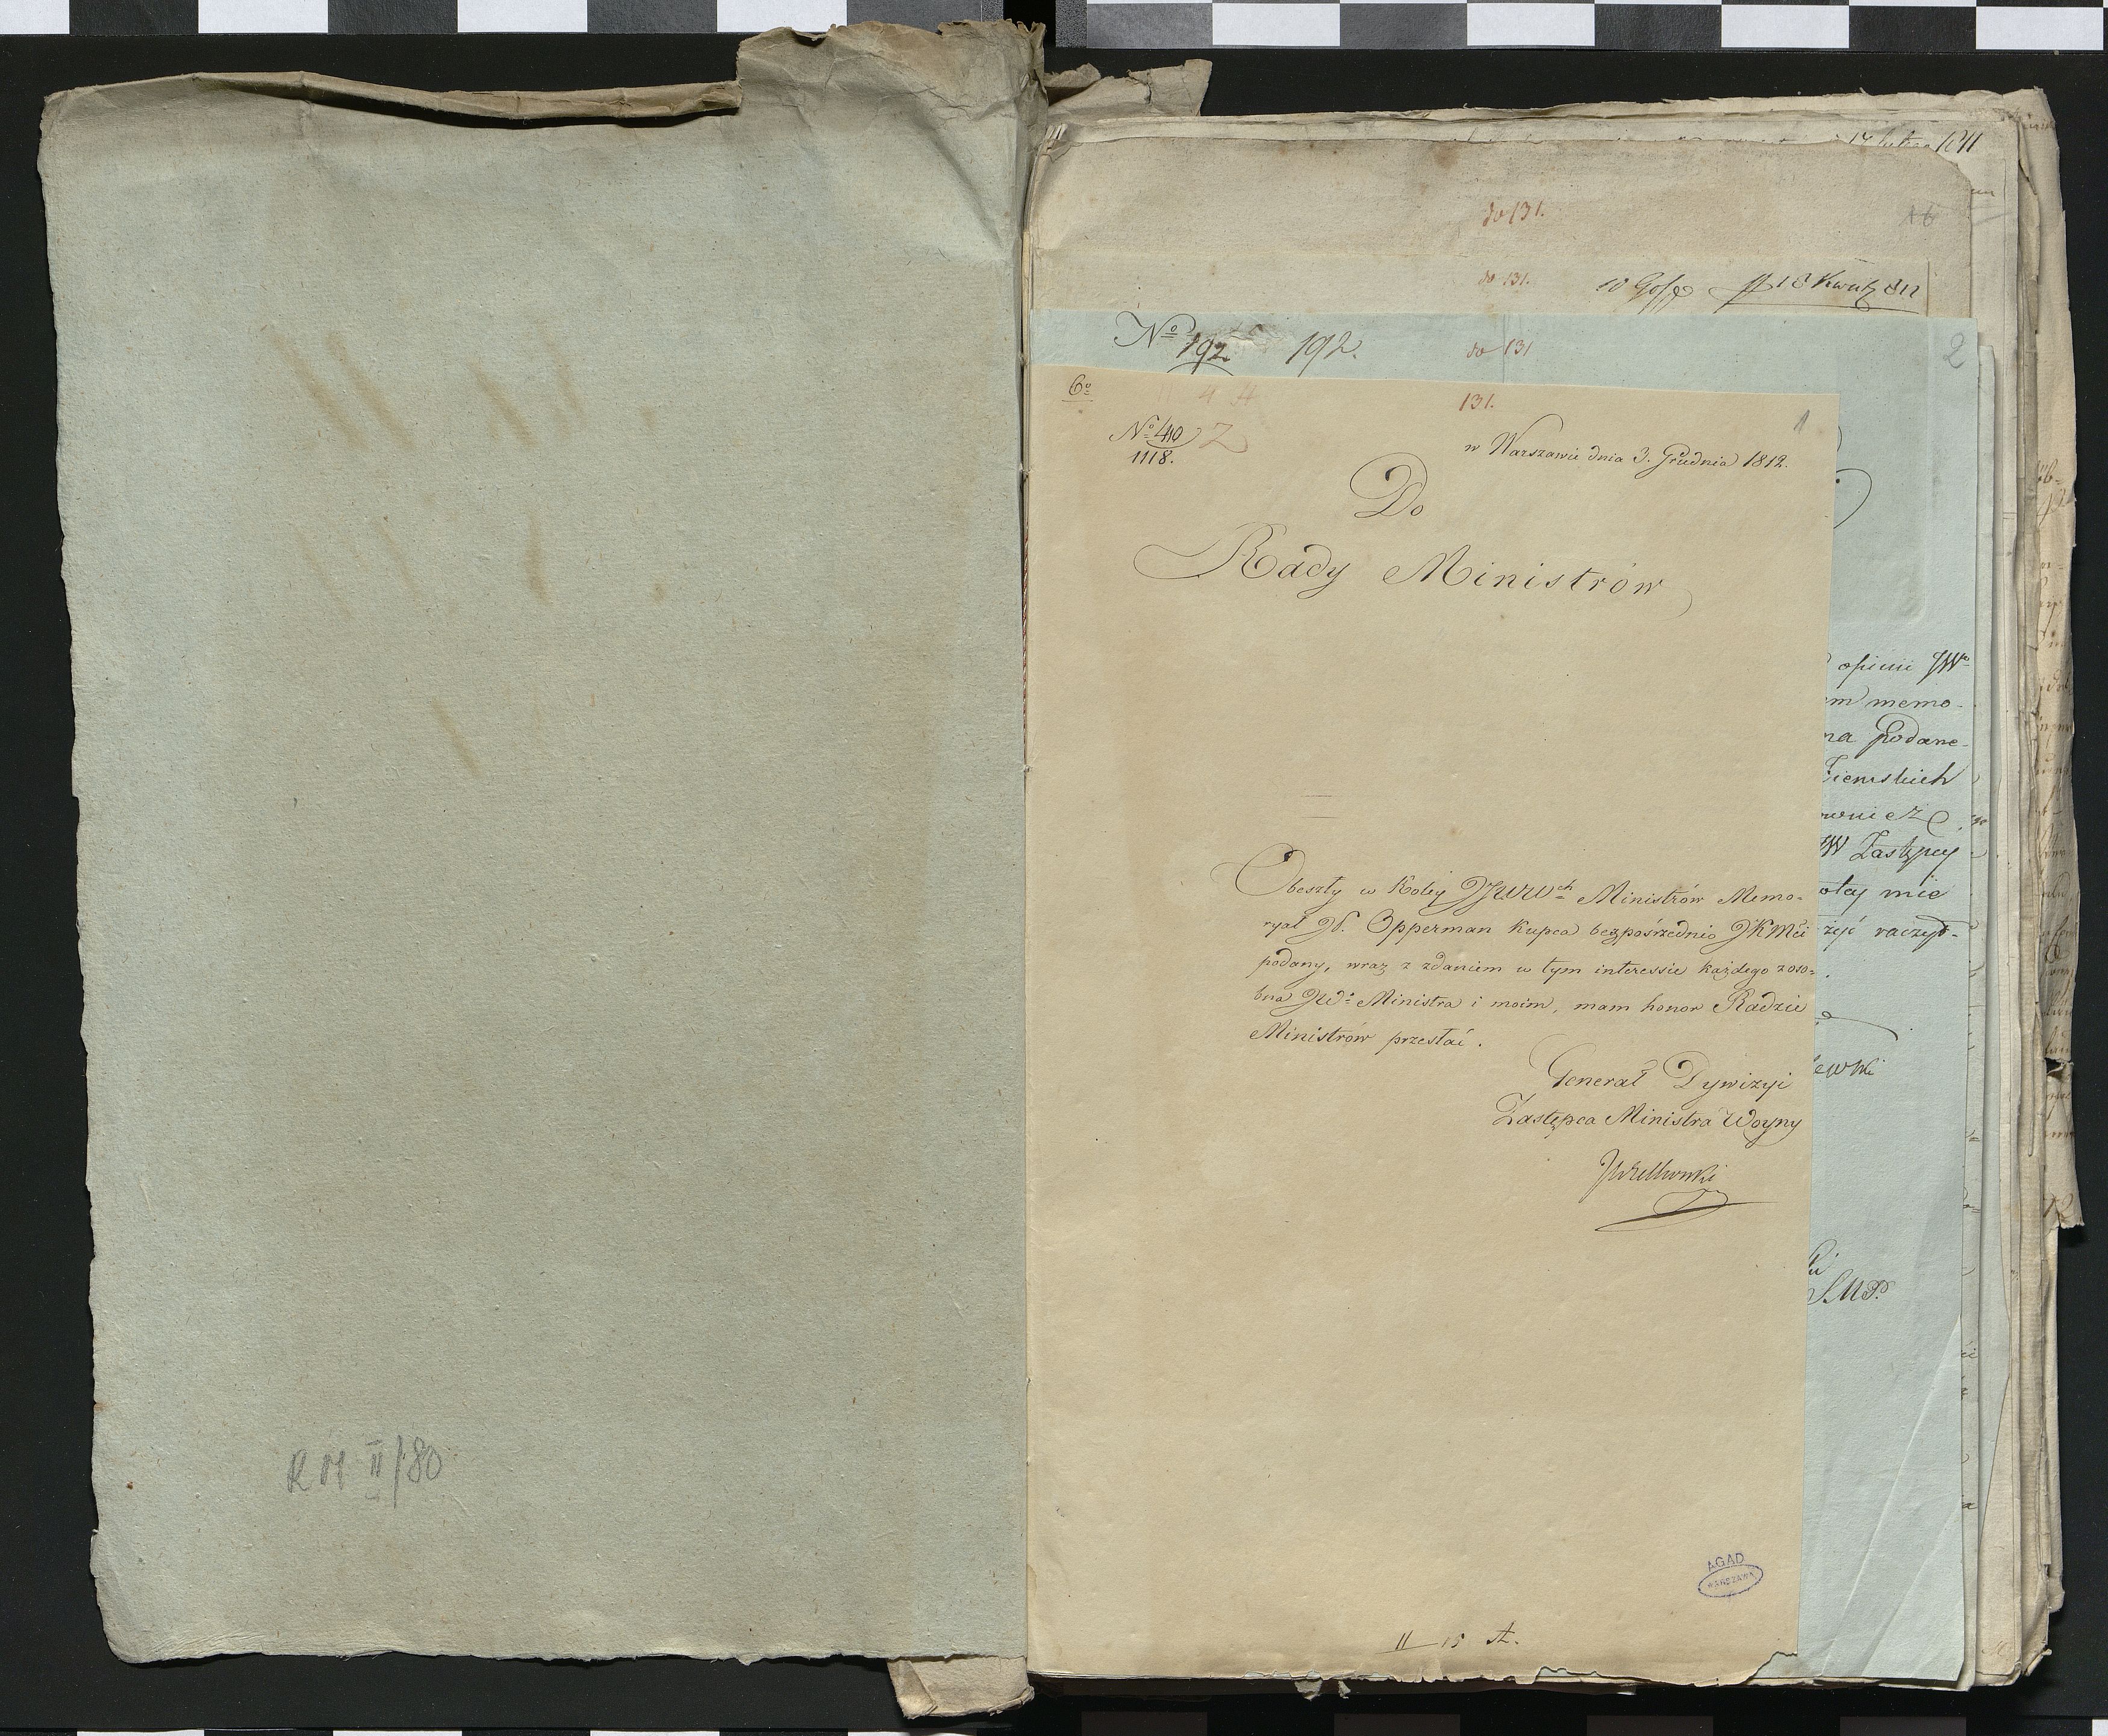 RM II/80
17 1811
do 131.
16
do 131. 18 812
No 192 192. do 131
2
6o
131.
1
No 410
1118.
2
w Warszawie dnia 3. Grudnia 1812.
Do
Rady Ministrów
Obeszły w Koley JJWWch Ministrów Memo-
ryał P. Opperman Kupca bezpośrzednio JKMci
podany, wraz z zdaniem w tym interessie każdego zoso-
bna JW: Ministra i moim, mam honor Radzie
Ministrów przesłać.
Generał Dywizyi
Zastępca Ministra Woyny
JWielhorski
opinii JWo
em memo-
na Podane-
Ziemskich
ownież
JW Zastępcy
mie
raczył-
ewski
AGAD
WARSZAWA
II 15 st.